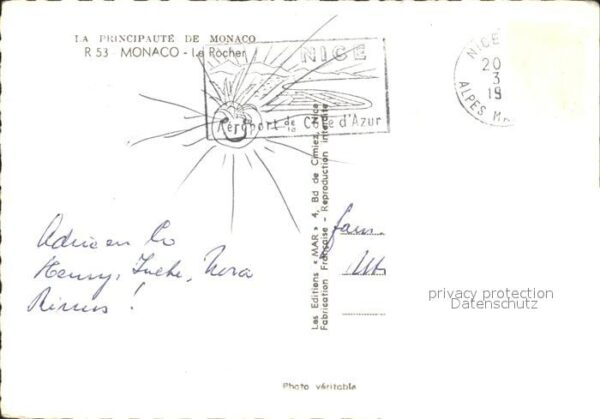 LA PRINCIPAUTÉ DE MONACO
R 53 - MONACO - Le Rocher
NICE
Aéroport de la Côte d'Azur
NICE
20
3
19
ALPES M
Les Editions « MAR » 4, Bd de Cimiez, Nice
Fabrication Française - Reproduction interdite
Adrie en Co
Henny, Nora
Rinus !
fam.
privacy protection
Datenschutz
Photo véritable